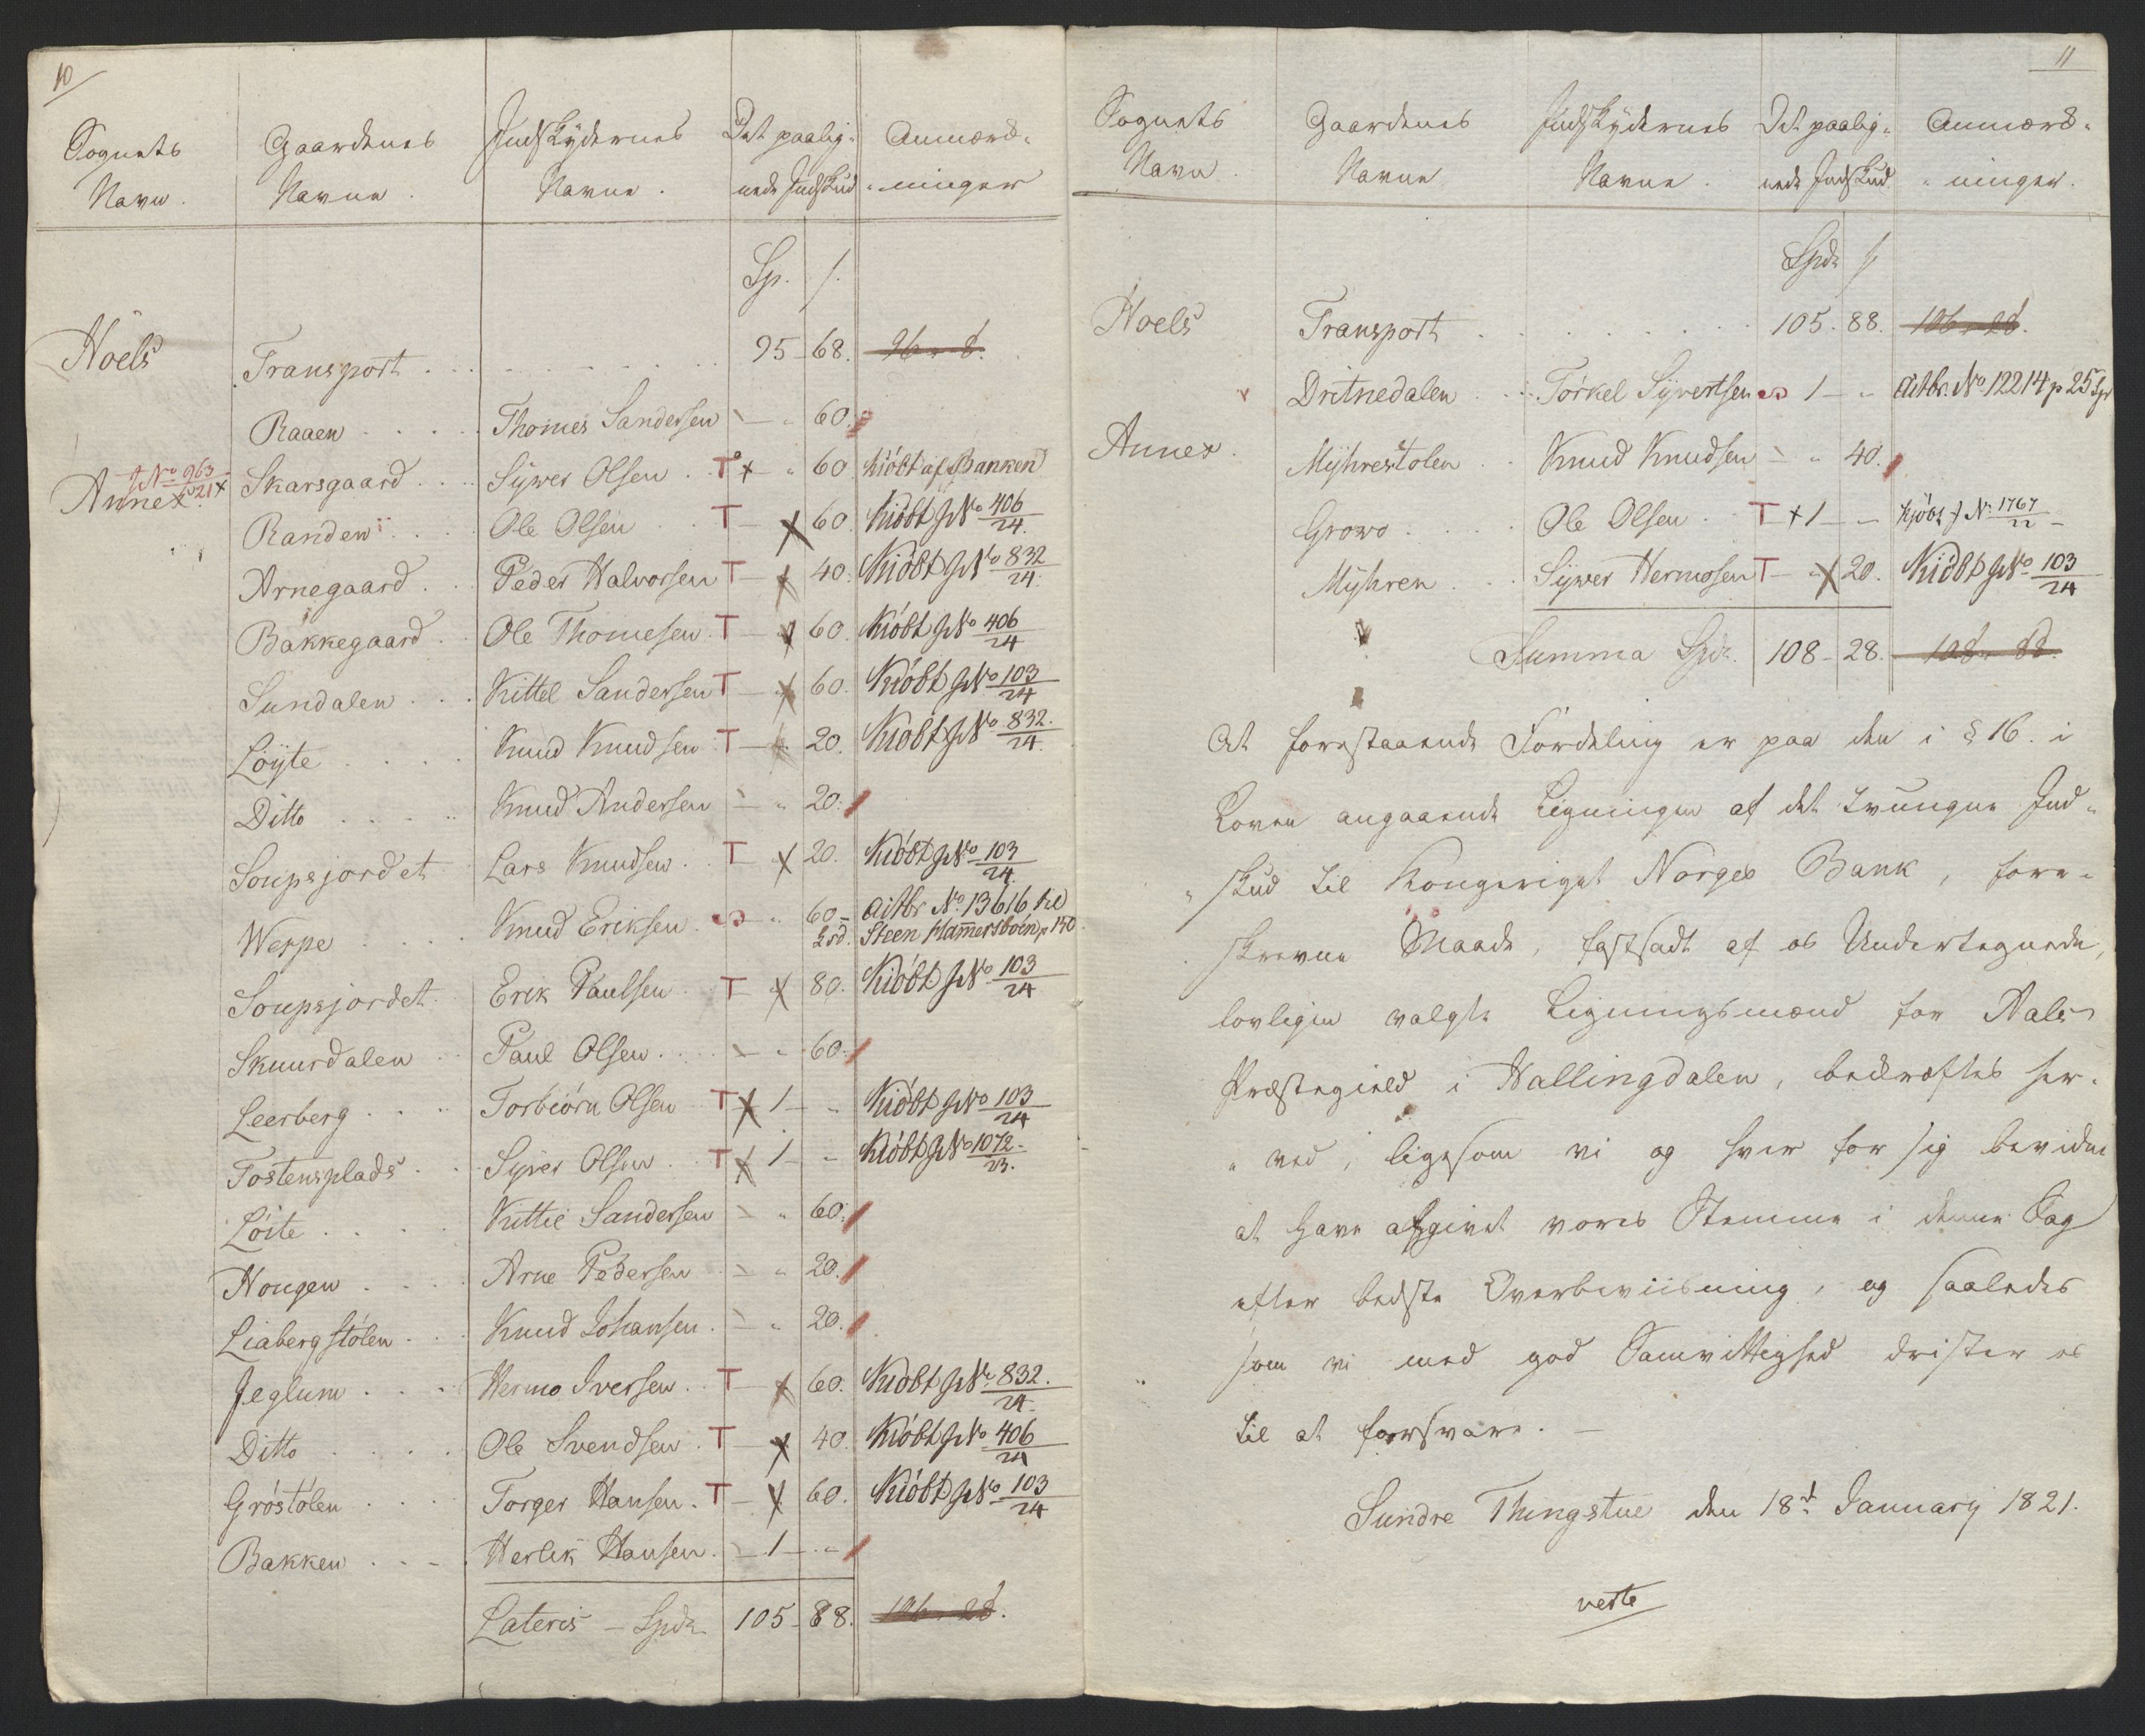 10
Sognets Navn. | Gaardenes Navne. | Indskydernes Navne. | Det paalig- nede Indskud | Anmærk- ninger
Sp. | s.
Hoels | Transport | 95 - 68. | 96 - 8.
Raaen | Thomes Sandersen | - " 60.
Annex. J No 963 21 x | Skarsgaard | Syver Olsen | T x - " 60 | Kiöbt af Banken
Randen | Ole Olsen | T - x 60 | Kiöbt J No 406/24.
Arnegaard | Peder Halvorsen | T - x 40. | Kiöbt J No 832/24.
Bakkegaard | Ole Thomesen | T - x 60. | Kiöbt J No 406/24
Sundalen | Kittel Sandersen | T - x 60. | Kiöbt J No 103/24
Löyte | Knud Knudsen | T - x 20. | Kiöbt J No 832./24.
Ditto | Knud Andersen | - " 20.
Soupsjordet | Lars Knudsen | T x 20. | Kiöbt J No 103/24.
Werpe | Knud Eriksen | " 60 - | Actbr No. 13616 til
Steen Hamersböen p 150
Soupsjordet | Erik Paulsen | T x 80. | Kiöbt J No 103/24
Skuurdalen | Paul Olsen | - " 60.
Leerberg | Torbiörn Olsen | T x 1 - " | Kiöbt J No 103/24
Tostensplads | Syver Olsen | T x 1 - " | Kiöbt J No 1072/23.
Löite | Kittil Sandersen | - " 60.
Hougen | Arne Pedersen | - " 20.
Liabergstölen | Knud Johansen | - " 20.
Jeglum | Hermo Iversen | T - x 60. | Kiöbt J No 832./24.
Ditto | Ole Svendsen | T - x 40. | Kiöbt J No 406/24
Gröstölen | Torger Hansen | T - x 60. | Kiöbt J No 103/24
Bakken | Herlek Hansen | - 1 - "
Lateris - Spdr | 105 - 88. | 106 - 28.
11
Sognets Navn. | Gaardenes Navne | Indskydernes Navne. | Det paalig- nede Indskud. | Anmærk- ninger.
Spdr | s
Hoels | Transport | 105. 88. | 106 - 28.
Dritnedalen | Törkel Syvertsen | 1 - " | Actbr. No. 12214 p 25 Spd
Annex. | Myhrestolen | Knud Knudsen | - " 40.
Growo | Ole Olsen | T x 1 - - | Kjöbt J No. 1767/22 -
Myhren | Syver Hermosen | T - x 20. | Kiöbt J No 103/24
Summa Spdr. | 108 - 28. | 108 - 88.
At forestaaende Fordeling er paa den i § 16. i
Loven angaaende Ligningen af det tvungne Ind-
skud til Kongeriget Norges Bank, fore-
skrevne Maade, fastsadt af os Undertegnede,
lovligen valgte Ligningsmænd for Aals
Præstegield i Hallingdalen, bekræftes her-
ved, ligesom vi og hver for sig bevidne
at have afgivet vores Stemme i denne Sag
efter bedste Overbeviisning, og saaledes
som vi med god Samvittighed drister os
til at forsvare. -
Sundre Thingstue den 18d. January 1821.
verte